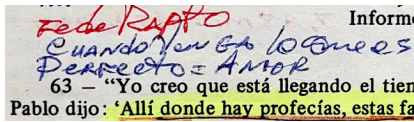 Fe de RAPTO Inform
CUANDO VENGA lo QUE ES
PERFECTO = AMOR
63 — “Yo creo que está llegando el tien
Pablo dijo: ‘Allí donde hay profecías, estas fa